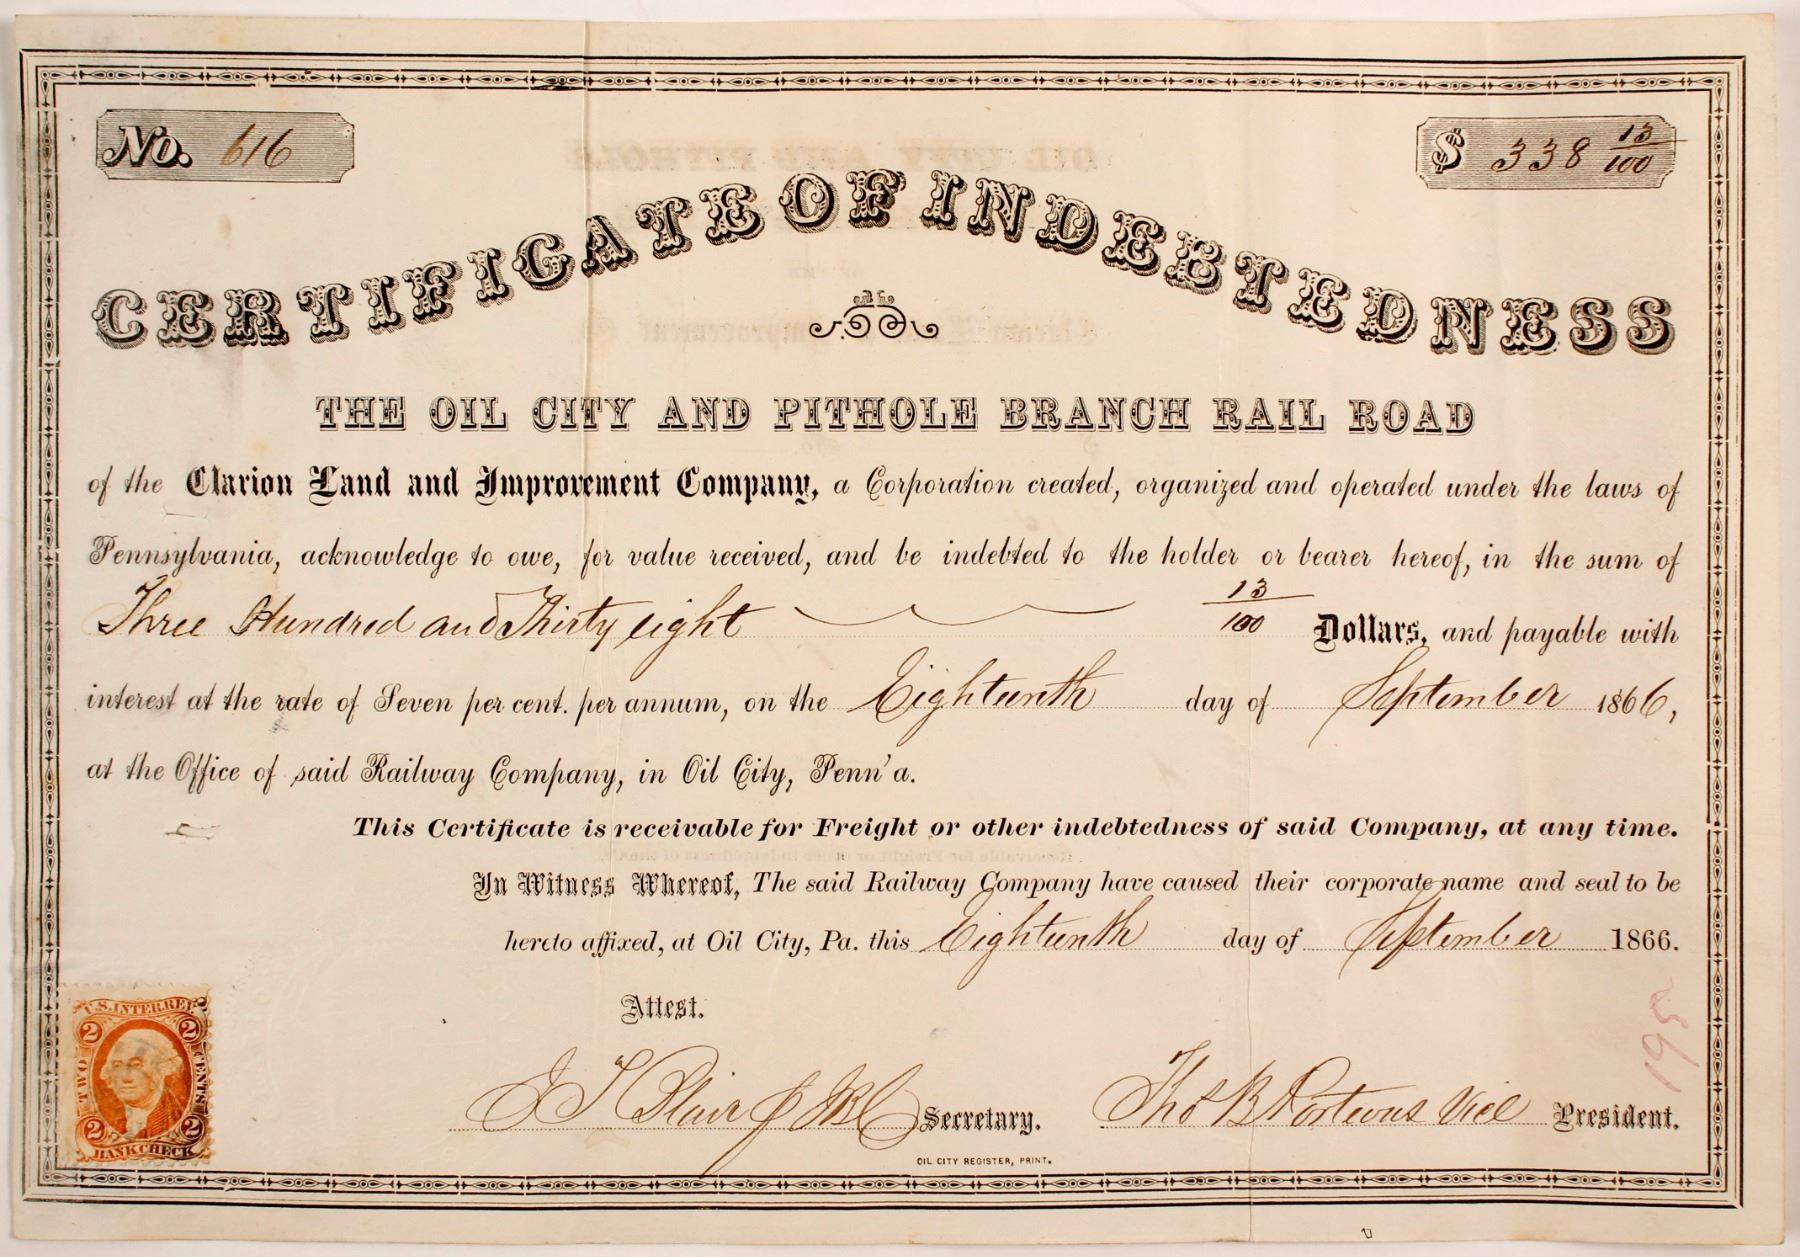 No. 616
$ 338 13/100
CERTIFICATE OF INDEBTEDNESS
THE OIL CITY AND PITHOLE BRANCH RAIL ROAD
of the Clarion Land and Improvement Company, a Corporation created, organized and operated under the laws of
Pennsylvania, acknowledge to owe, for value received, and be indebted to the holder or bearer hereof, in the sum of
Three Hundred and Thirty eight 13/100 Dollars, and payable with
interest at the rate of Seven per cent. per annum, on the Eighteenth day of September 1866,
at the Office of said Railway Company, in Oil City, Penn'a.
This Certificate is receivable for Freight or other indebtedness of said Company, at any time.
In Witness Whereof, The said Railway Company have caused their corporate name and seal to be
hereto affixed, at Oil City, Pa. this Eighteenth day of September 1866.
Attest.
Blair Secretary.
Thos B Porteous Vice President.
OIL CITY REGISTER, PRINT.
U.S. INTER. REV.
2 2
TWO CENTS
2 2
BANK CHECK
195